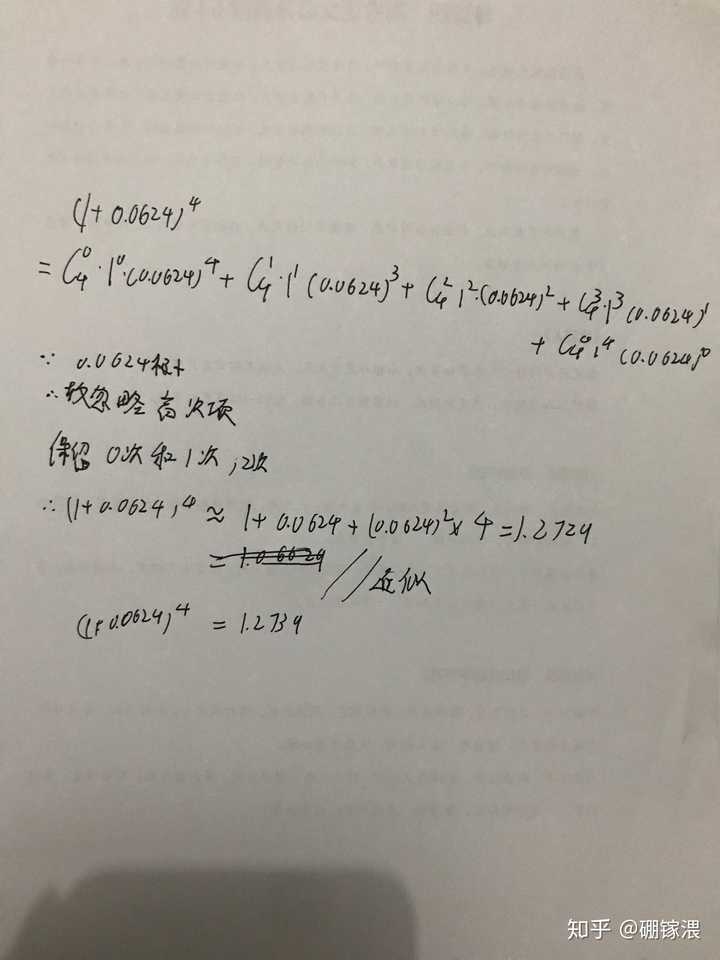 (1+0.0624)^4
=C_4^0·1^0·(0.0624)^4+C_4^1·1^1(0.0624)^3+C_4^2 1^2·(0.0624)^2+C_4^3·1^3(0.0624)^1
+C_4^0 1^4(0.0624)^0
∵ 0.0624极小
∴ 故忽略高次项
保留0次和1次,2次
∴(1+0.0624)^4≈1+0.0624+(0.0624)^2×4=1.2729
=1.06629 //近似
(1+0.0624)^4=1.2739
知乎 @硼镓渨